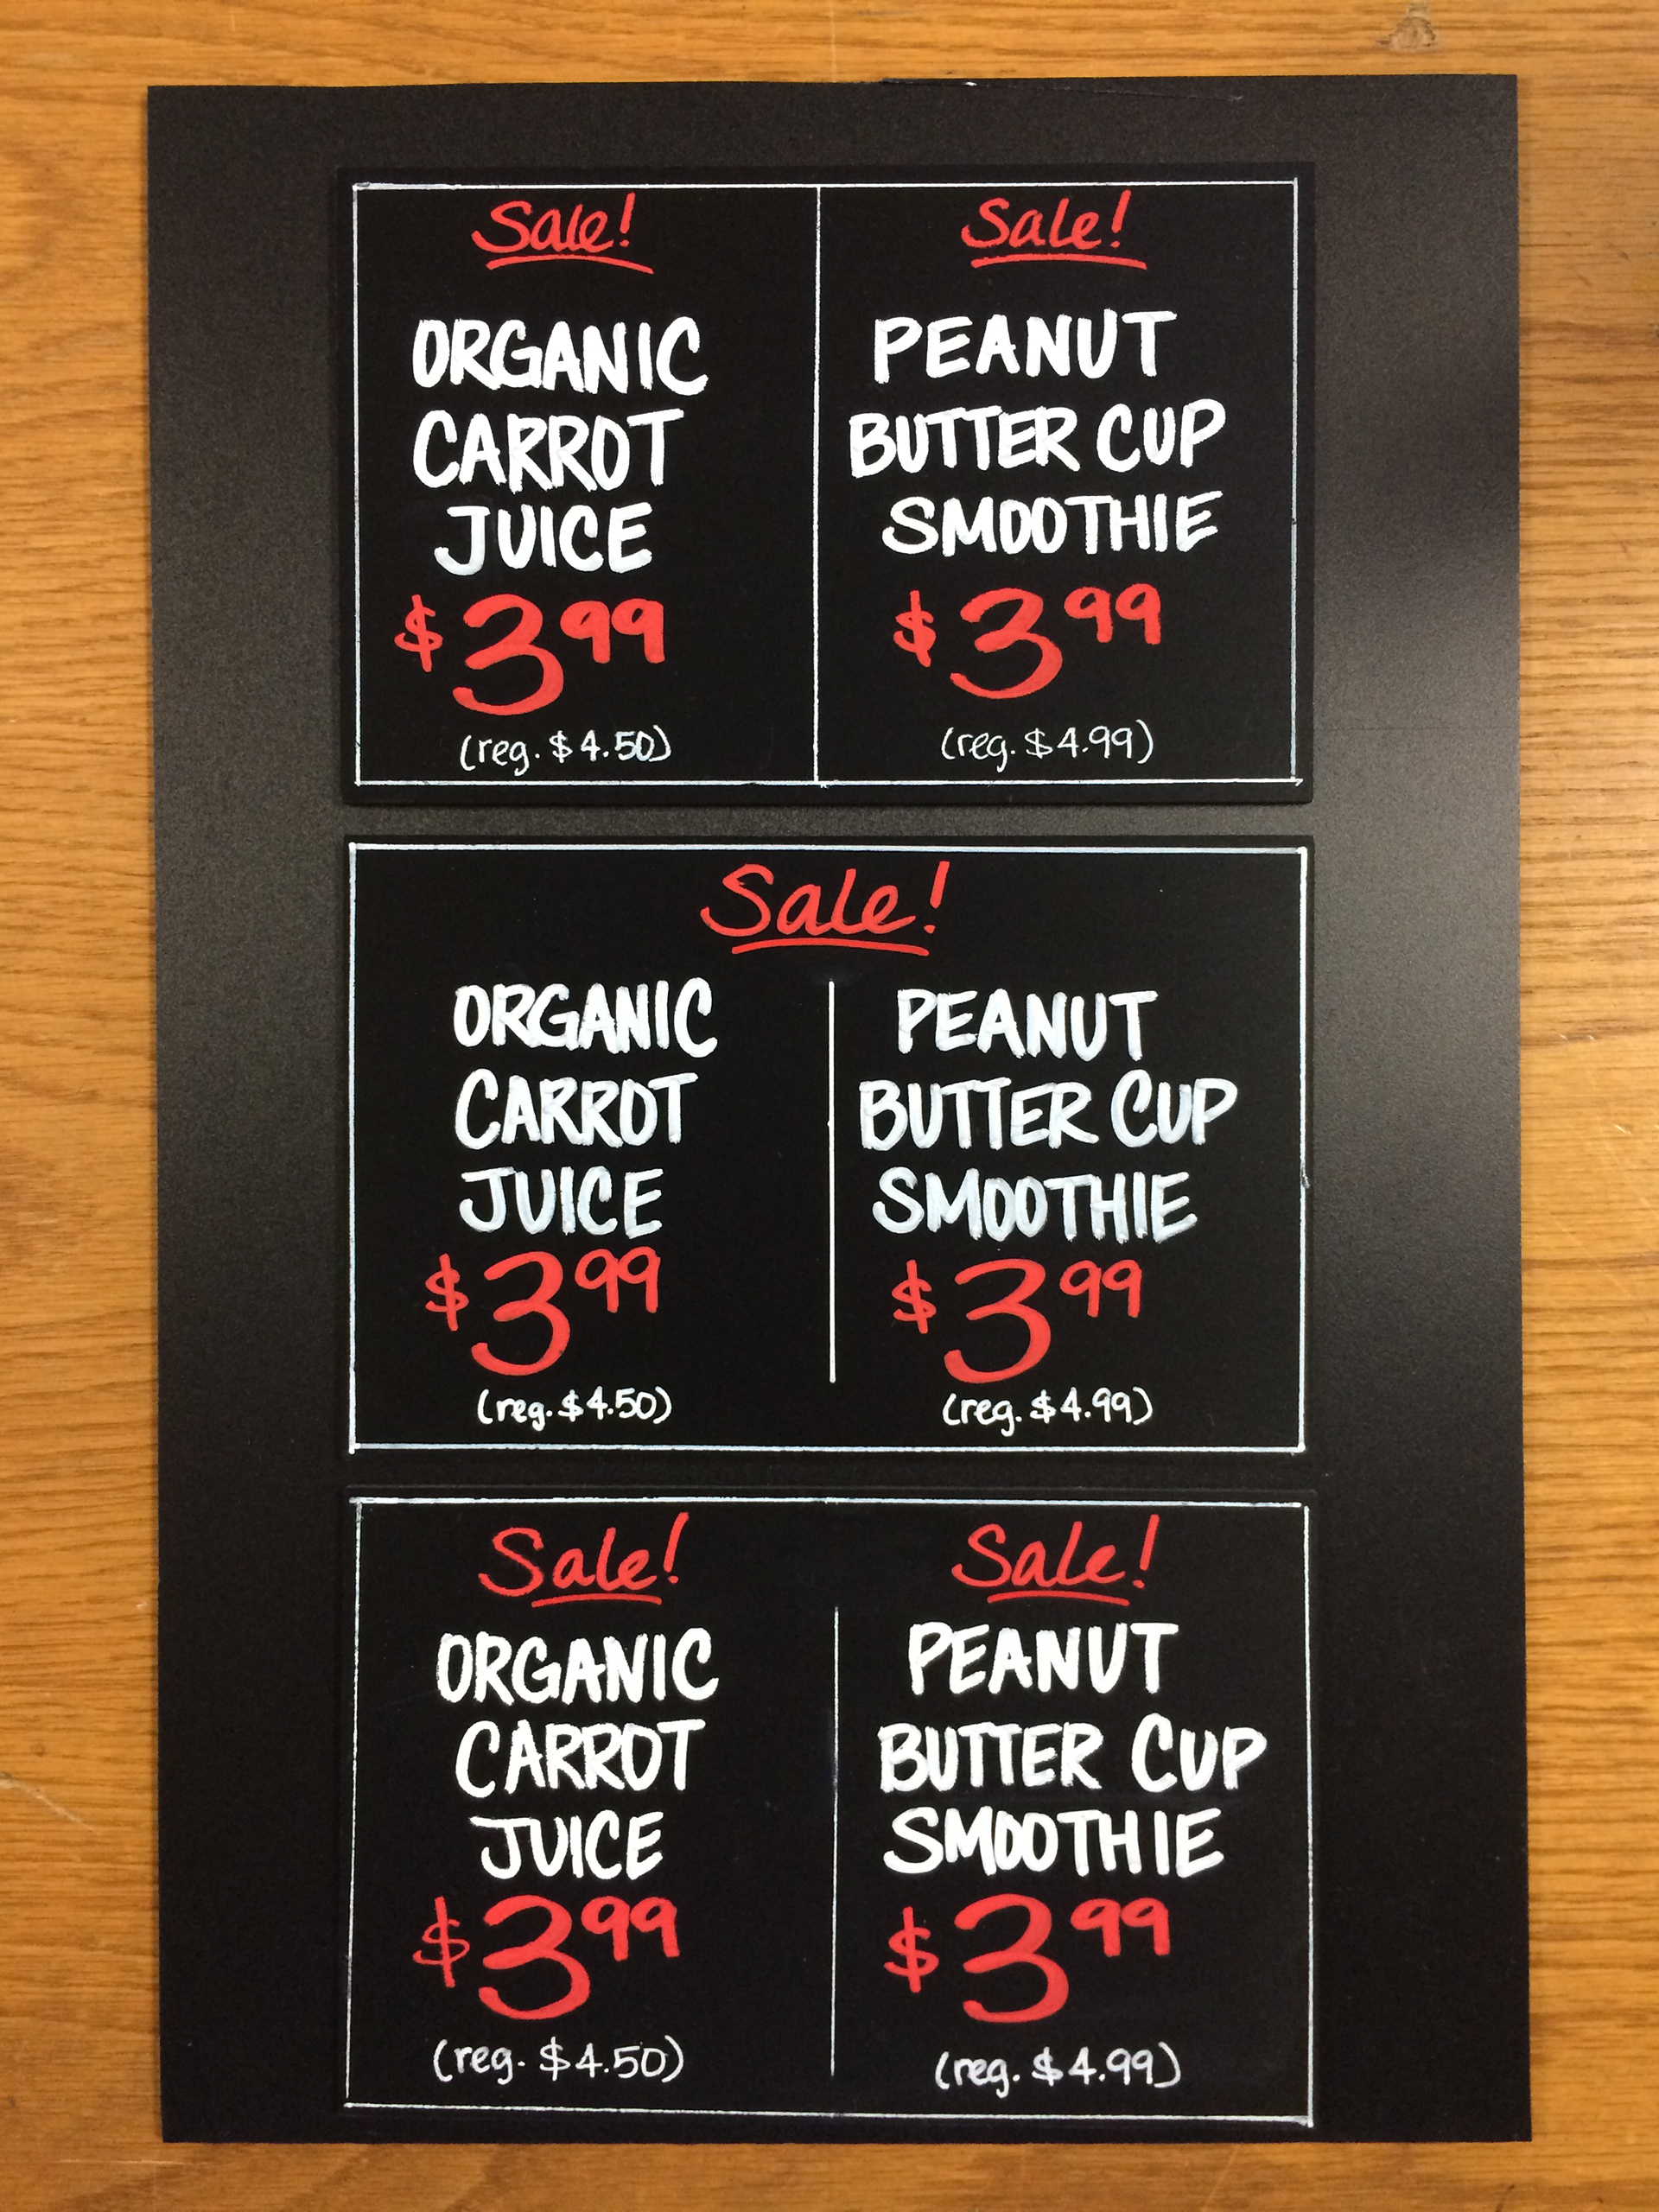 Sale!
ORGANIC
CARROT
JUICE
$3.99
(reg. $4.50)
Sale!
PEANUT
BUTTER CUP
SMOOTHIE
$3.99
(reg. $4.99)
Sale!
ORGANIC
CARROT
JUICE
$3.99
(reg. $4.50)
PEANUT
BUTTER CUP
SMOOTHIE
$3.99
(reg. $4.99)
Sale!
ORGANIC
CARROT
JUICE
$3.99
(reg. $4.50)
Sale!
PEANUT
BUTTER CUP
SMOOTHIE
$3.99
(reg. $4.99)